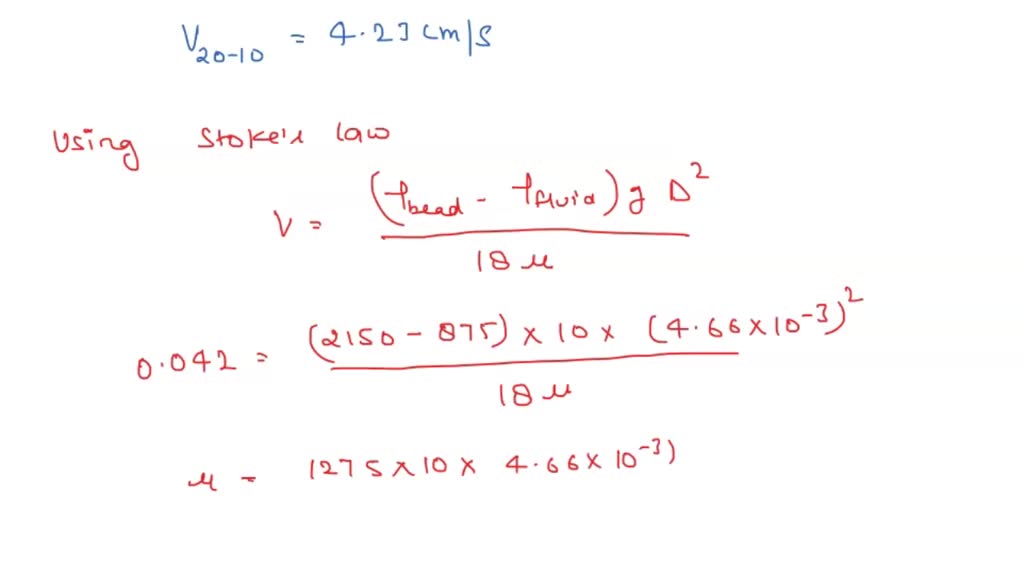 V20-10 = 4.23 cm/s
Using Stoke's law
V = (ρbead - ρfluid) g D²
18 μ
0.042 = (2150 - 875) × 10 × (4.66 × 10⁻³)²
18 μ
μ = 1275 × 10 × 4.66 × 10⁻³)